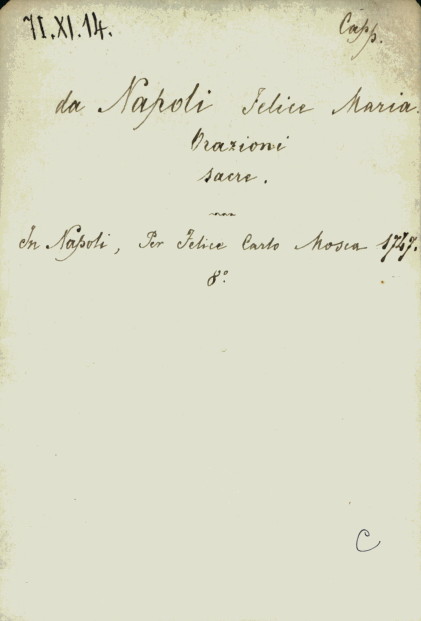 71.XI.14.
Capp.
da Napoli Felice Maria.
Orazioni
sacre.
In Napoli, Per Felice Carlo Mosca 1747.
8º
C